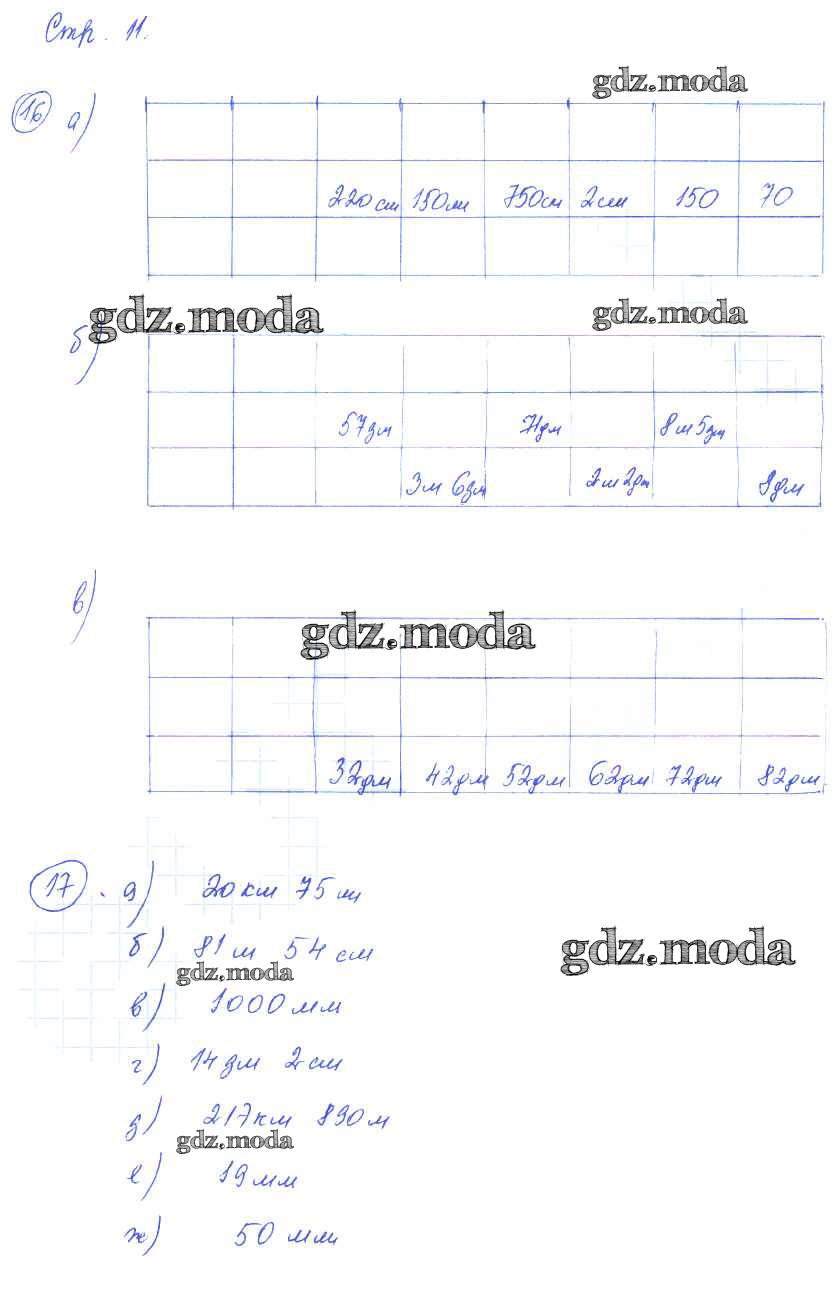 Стр. 11.
gdz.moda
16 а)
220 см 150 м 750 см 2 см 150 70
gdz.moda gdz.moda
б)
57 дм 71 дм 8 м 5 дм
3 м 6 дм 2 м 2 дм 9 дм
в)
gdz.moda
32 дм 42 дм 52 дм 62 дм 72 дм 82 дм
17. а) 20 км 75 м
gdz.moda
б) 81 м 54 см
gdz.moda
в) 1000 мм
г) 14 дм 2 см
д) 217 км 890 м
gdz.moda
е) 19 мм
ж) 50 мм